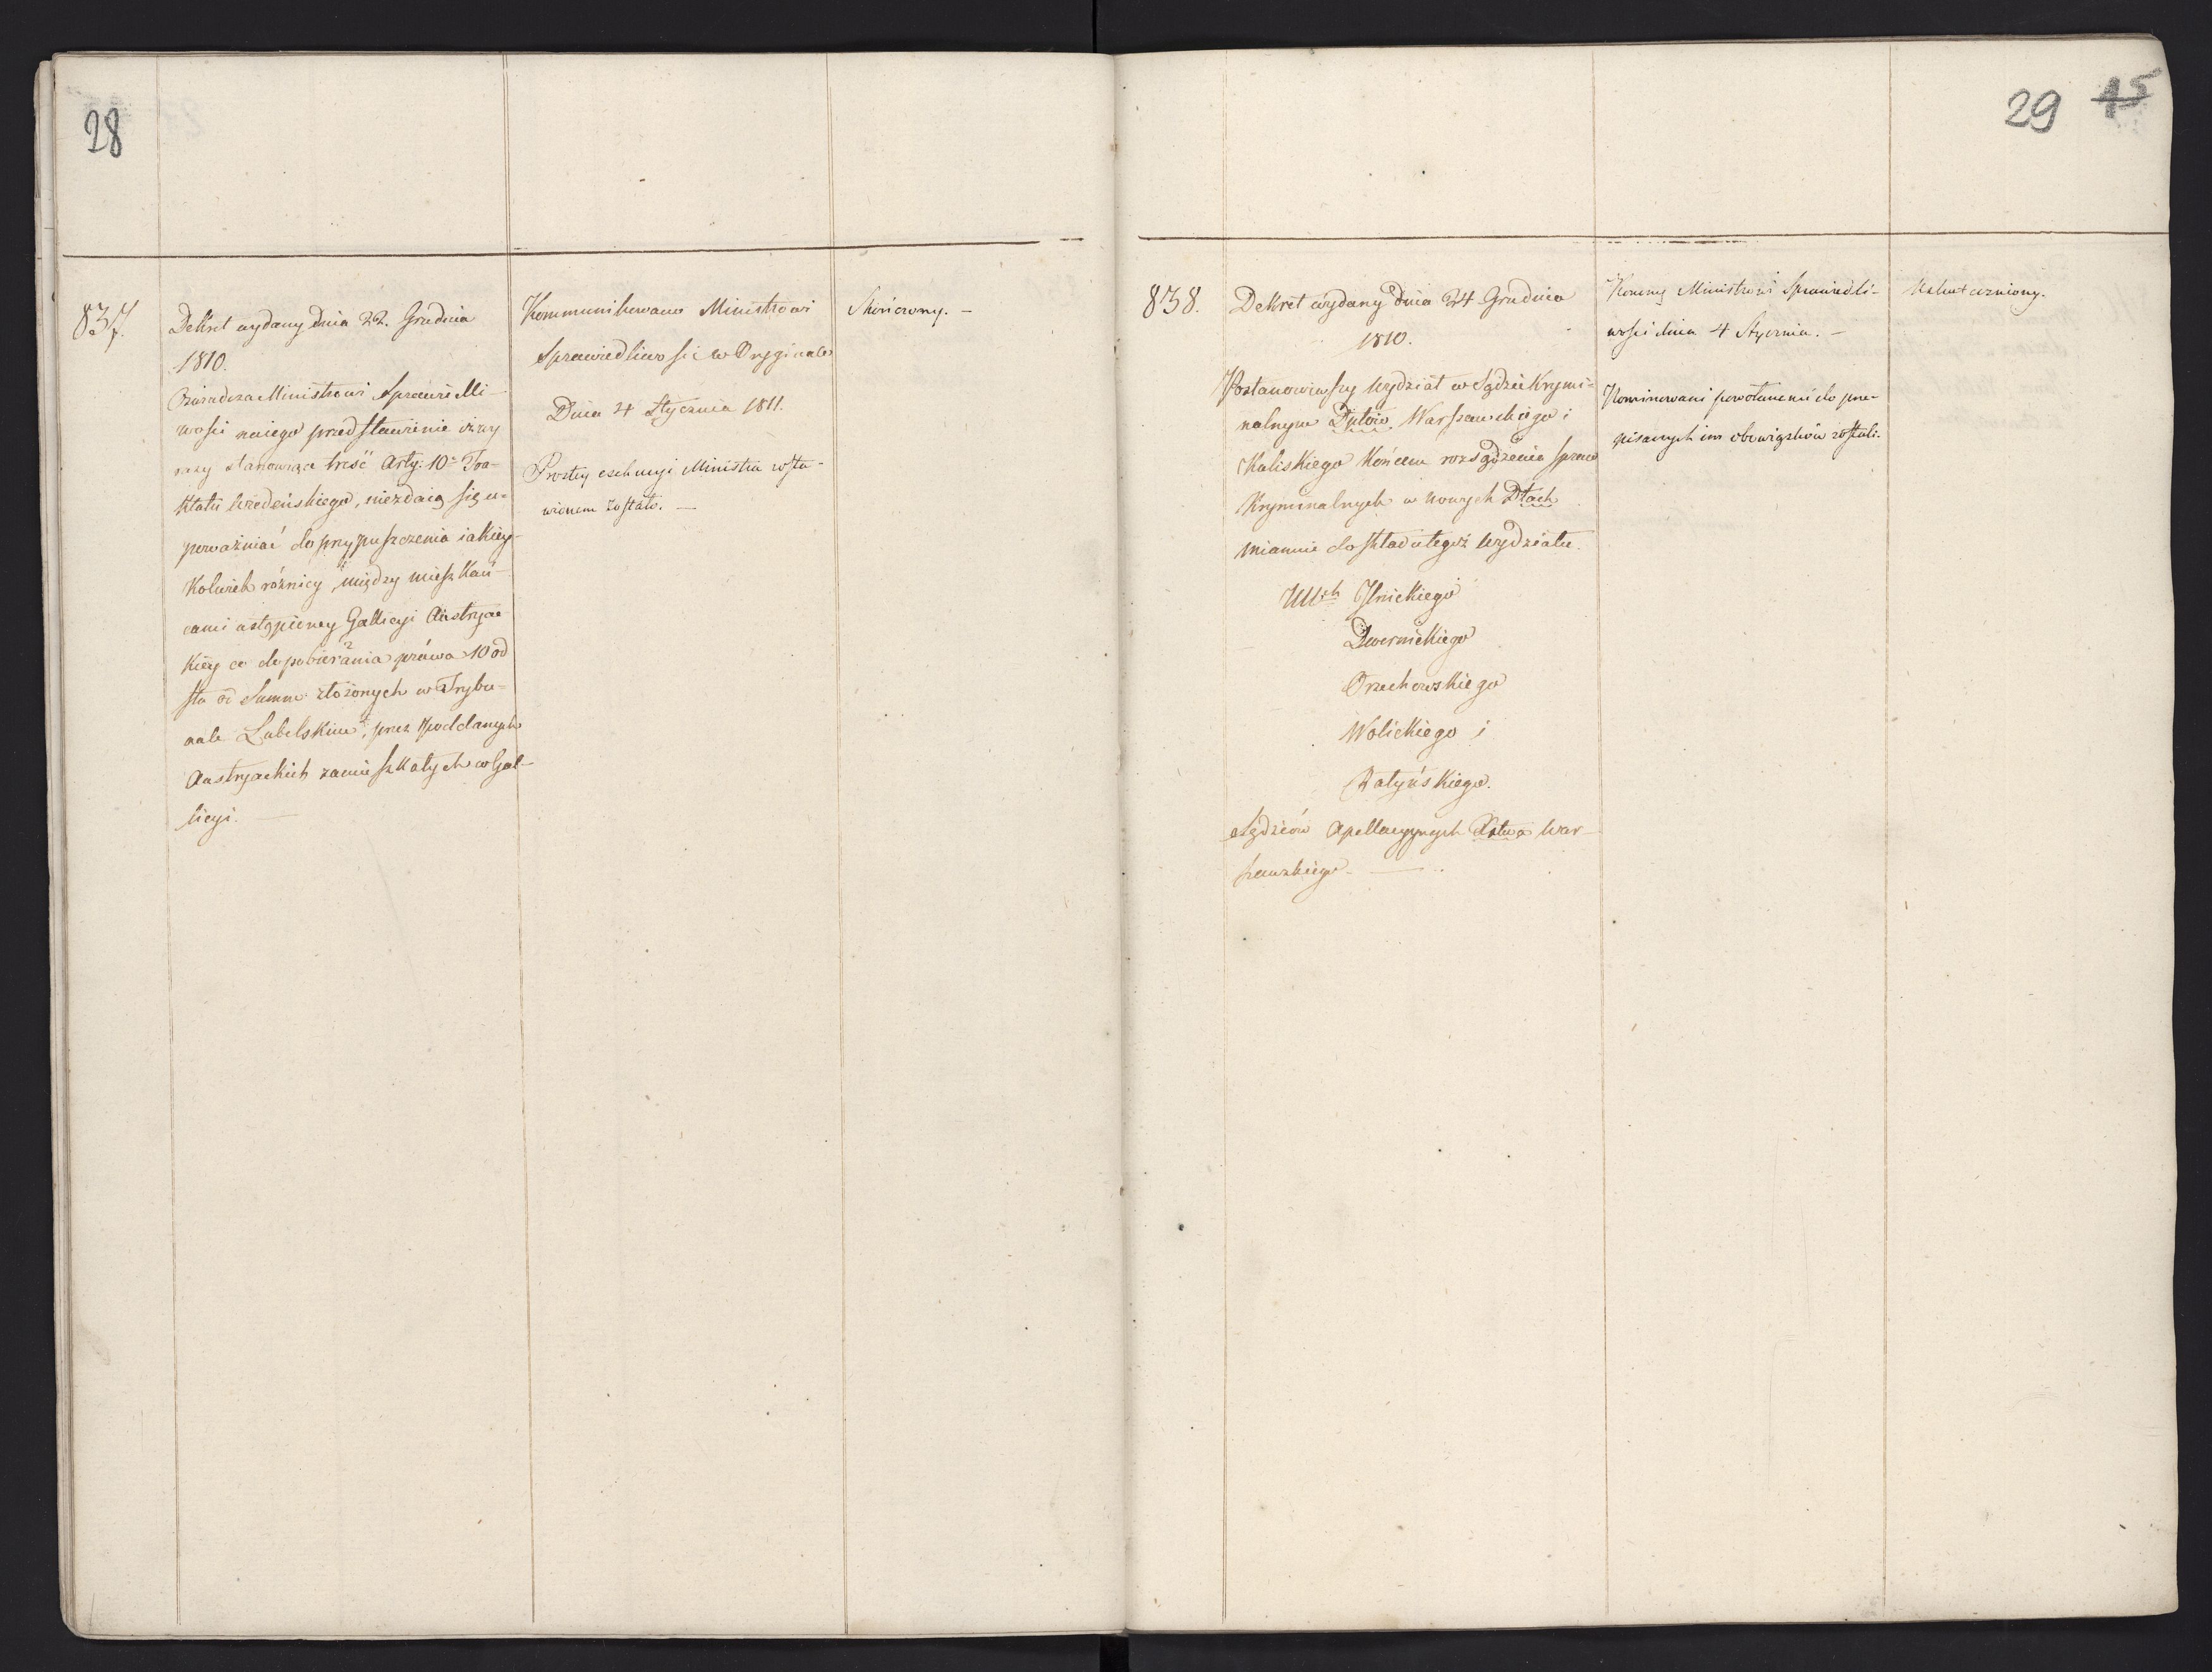 28
837.
Dekret wydany dnia 22. Grudnia
1810.
Oświadcza Ministrowi Sprawiedli-
wości na iego przedstawienie iż wy
razy stanowiące treść Arty: 10º Tra-
ktatu Wiedeńskiego, niezdaią się u-
poważniać do przypuszczenia iakiey-
kolwiek różnicy między mieszkań-
cami ustąpioney Gallicyi Austryac
kiey co do pobierania prawa 10 od
sta od Summ złożonych w Trybu-
nale Lubelskim, przez Poddanych
Austryackich zamieszkałych w Gal-
licyi. —
Kommunikowano Ministrowi
Sprawiedliwości w Oryginale
Dnia 4 Stycznia 1811.
Prostey exekucyi Ministra zosta-
wionem zostało. —
Skończony. —
29 45
838.
Dekret wydany dnia 24 Grudnia
1810.
Postanowiwszy Wydział w Sądzie Krymi-
nalnym Dptów Warszawskiego i
Kaliskiego końcem rozsądzenia spraw
Kryminalnych w nowych Dtach
mianuie do składu tegoż Wydziału.
UUch Ilnickiego
Dwernickiego
Orzechowskiego
Wolickiego i
Ratyńskiego.
Sędziów Apellacyynych Xstwa War-
szawskiego. —
Kommę Ministrowi Sprawiedli-
wości dnia 4 Stycznia. —
Nominowani powołanemi do prze-
pisanych im obowiązków zostali.
Uskuteczniony.